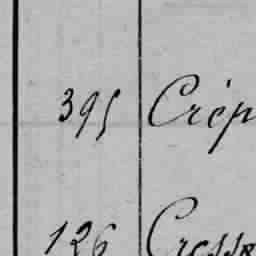 395 Crép
126 Cresse